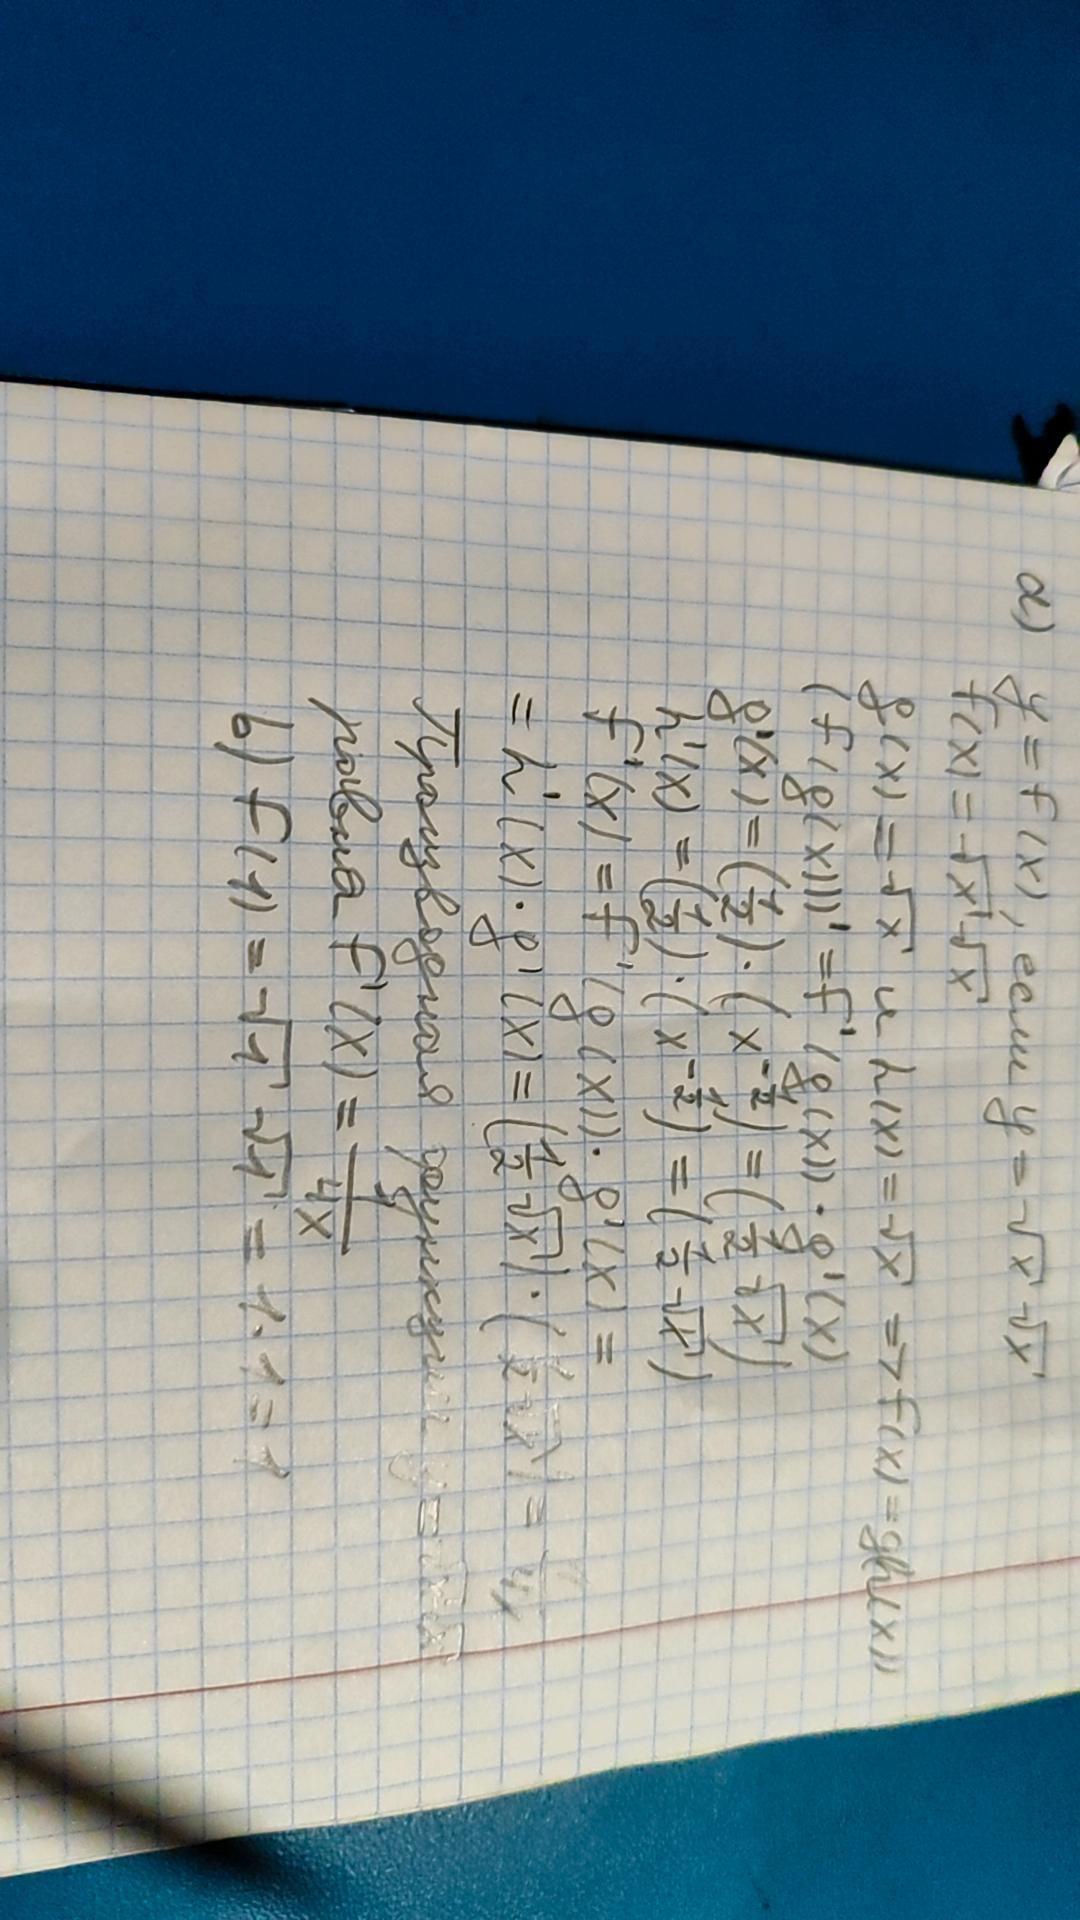 a) y = f(x), если y = √x √x
f(x) = √x √x
g(x) = √x и h(x) = √x => f(x) = g(h(x))
(f(g(x)))' = f'(g(x)) · g'(x)
g'(x) = (1/2) · (x^(-1/2)) = (1/2 √x)
h'(x) = (1/2) · (x^(-1/2)) = (1/2 √x)
f'(x) = f'(g(x)) · g'(x) =
= h'(x) · g'(x) = (1/2 √x) · (1/2 √x) = 1/4x
Производная функции y = √x √x
равна f'(x) = 1/4x
b) f(1) = √1 √1 = 1 · 1 = 1